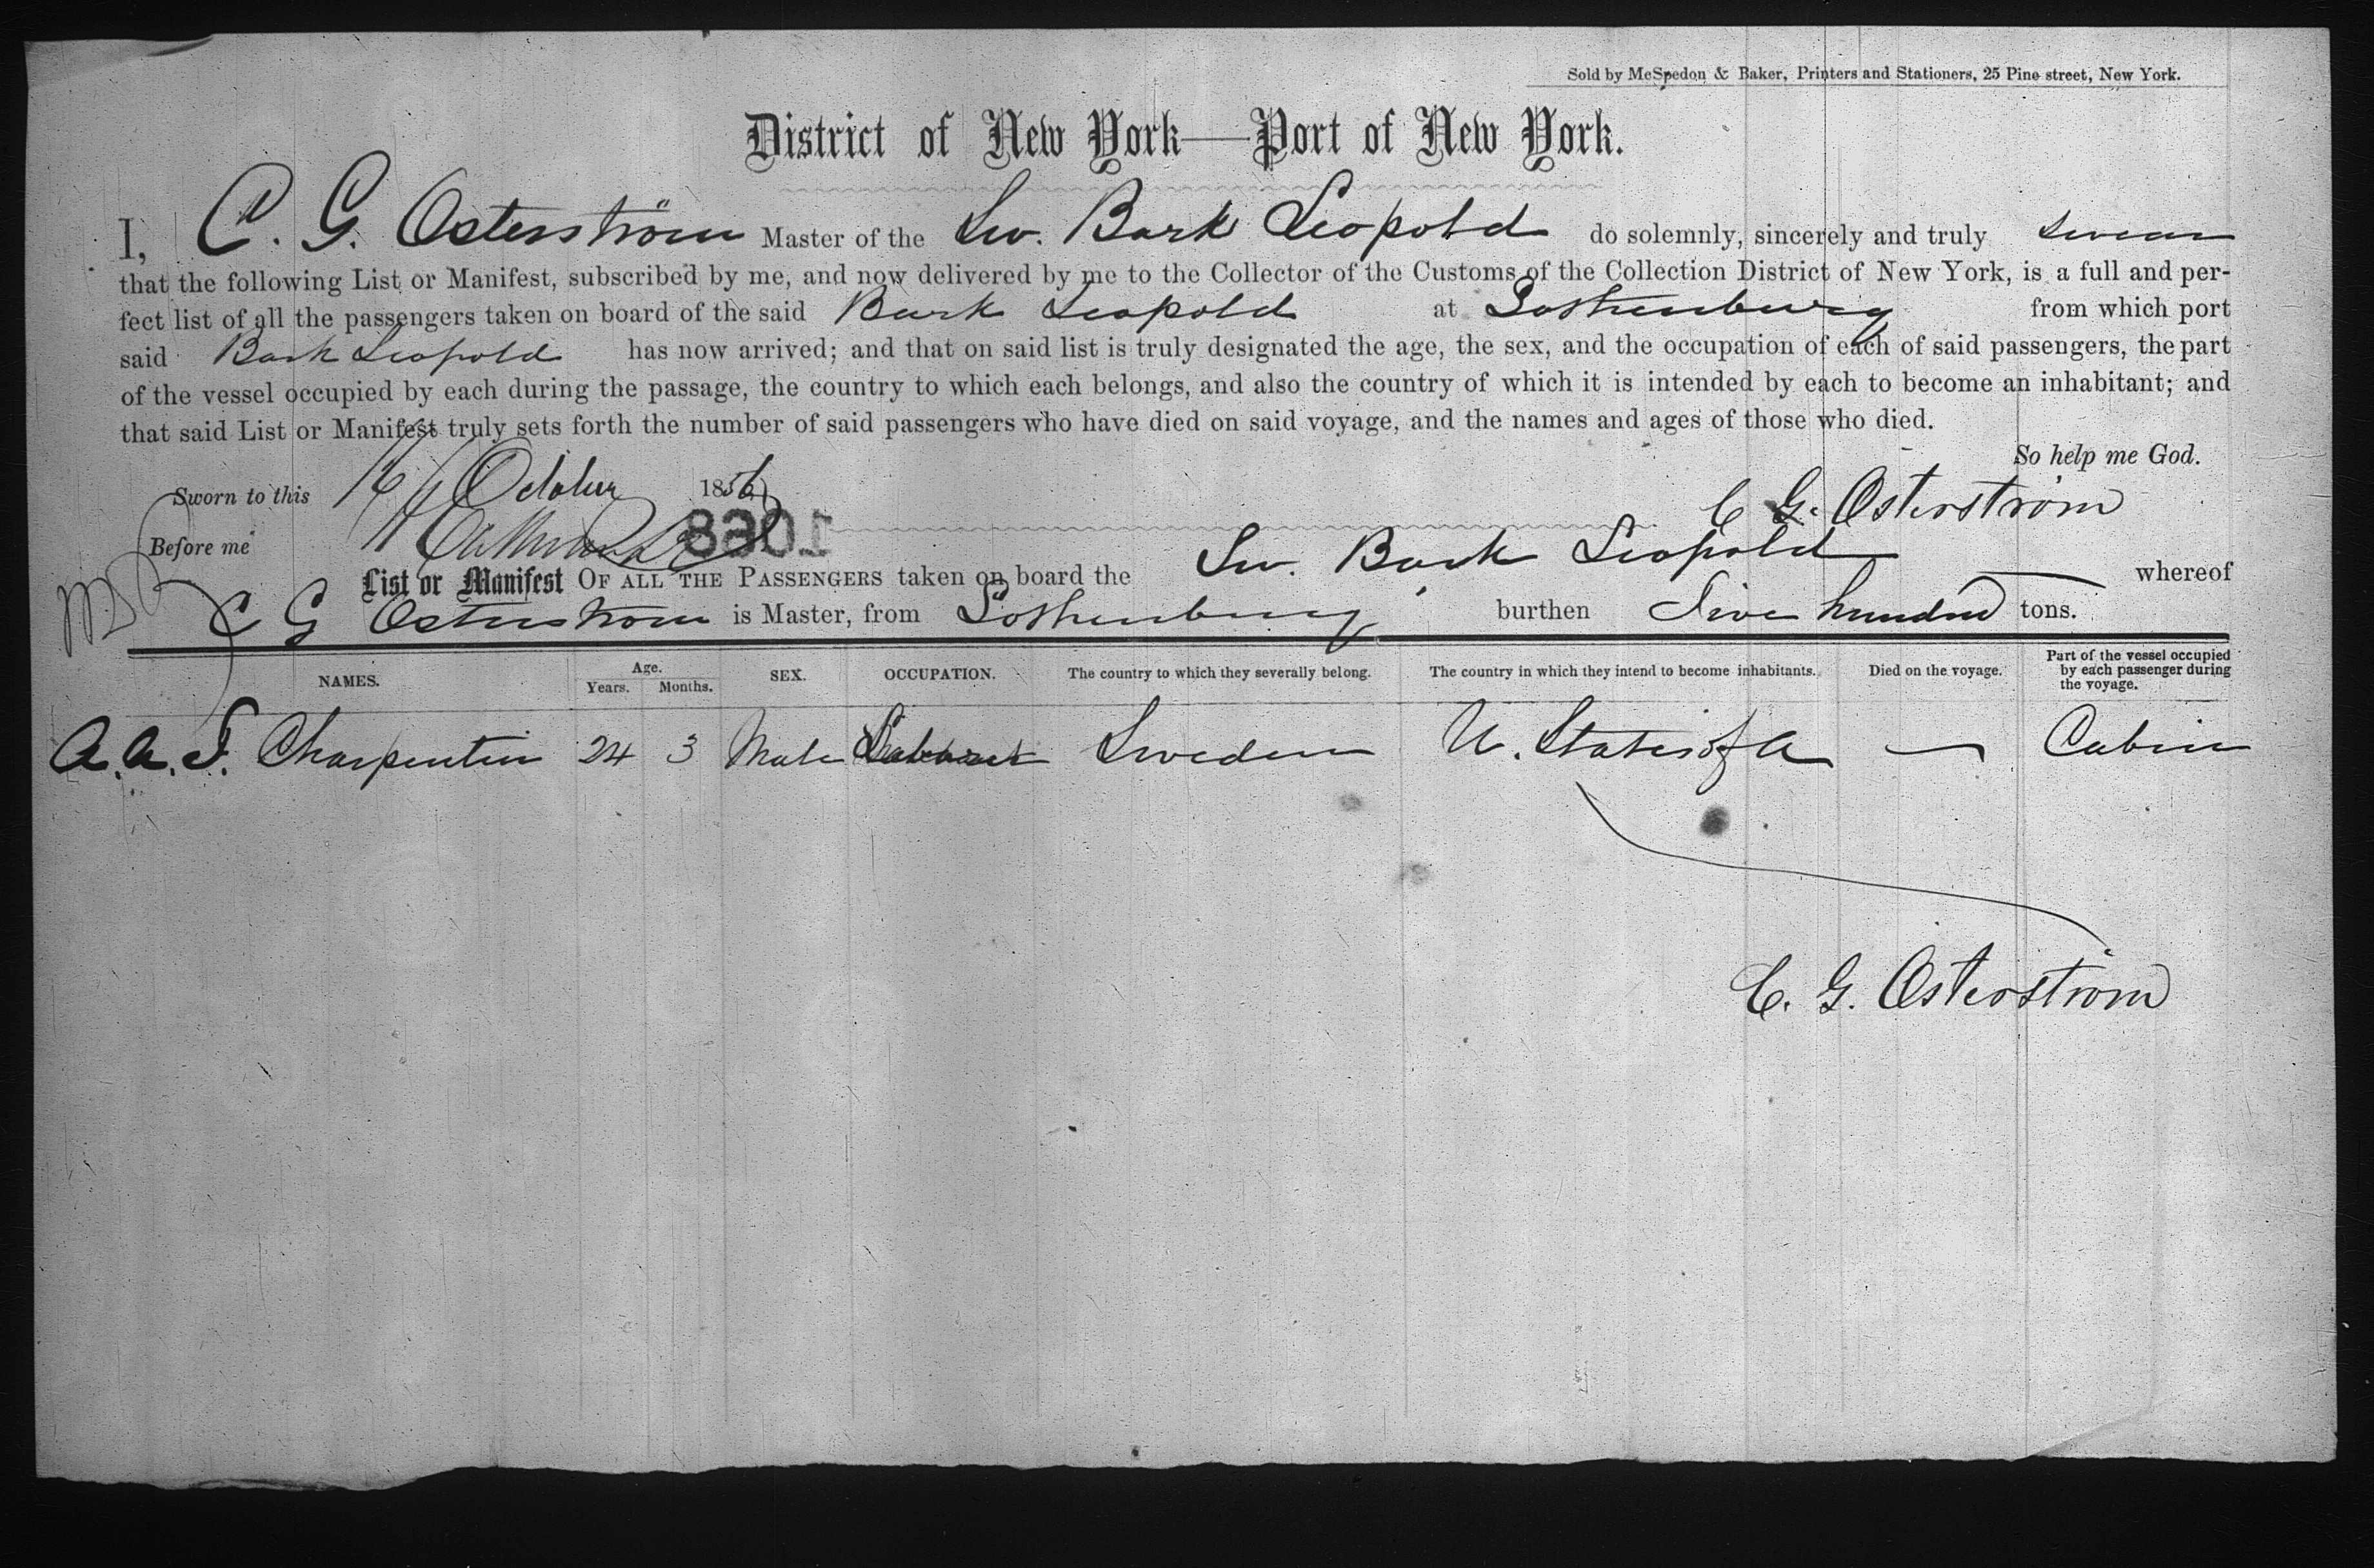 Sold by McSpedon & Baker, Printers and Stationers, 25 Pine street, New York.
District of New York—Port of New York.
I, C. G. Osterström Master of the Sw. Bark Leopold do solemnly, sincerely and truly swear
that the following List or Manifest, subscribed by me, and now delivered by me to the Collector of the Customs of the Collection District of New York, is a full and per-
fect list of all the passengers taken on board of the said Bark Leopold at Gothenburg from which port
said Bark Leopold has now arrived; and that on said list is truly designated the age, the sex, and the occupation of each of said passengers, the part
of the vessel occupied by each during the passage, the country to which each belongs, and also the country of which it is intended by each to become an inhabitant; and
that said List or Manifest truly sets forth the number of said passengers who have died on said voyage, and the names and ages of those who died.
So help me God.
Sworn to this 16 October 1856
C G. Osterström
Before me 1068
List or Manifest OF ALL THE PASSENGERS taken on board the Sw. Bark Leopold whereof
C G Osterstrom is Master, from Gothenburg burthen Five hundred tons.
NAMES. Age. Years. Months. SEX. OCCUPATION. The country to which they severally belong. The country in which they intend to become inhabitants. Died on the voyage. Part of the vessel occupied by each passenger during the voyage.
A. A. F. Charpentier 24 3 Male Sweden U. States of A — Cabin
C. G. Osterström